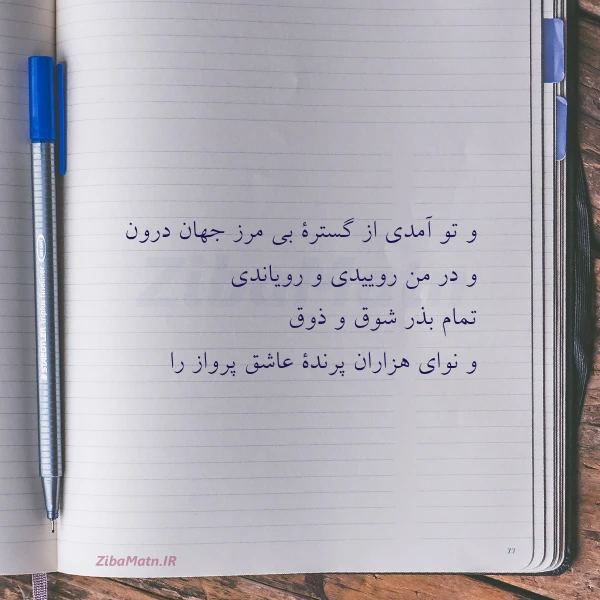 و تو آمدی از گسترهٔ بی مرز جهان درون
و در من روییدی و رویاندی
تمام بذر شوق و ذوق
و نوای هزاران پرندهٔ عاشق پرواز را
ZibaMatn.IR